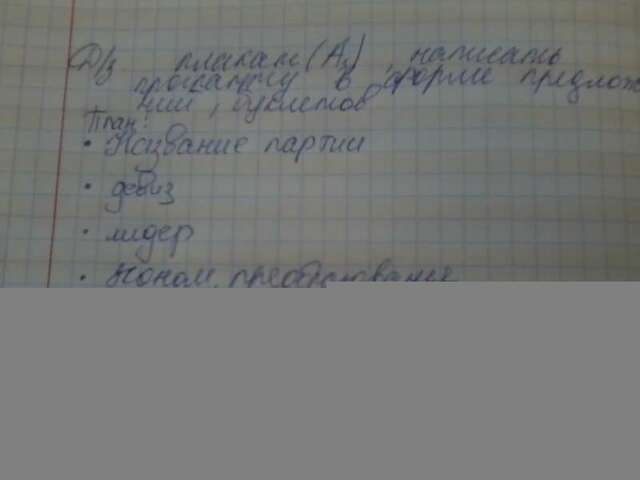 Д/з плакат (А3), написать
программу в форме предложе
ний, буклетов
План:
• Название партии
• девиз
• лидер
• Эконом. преобразования